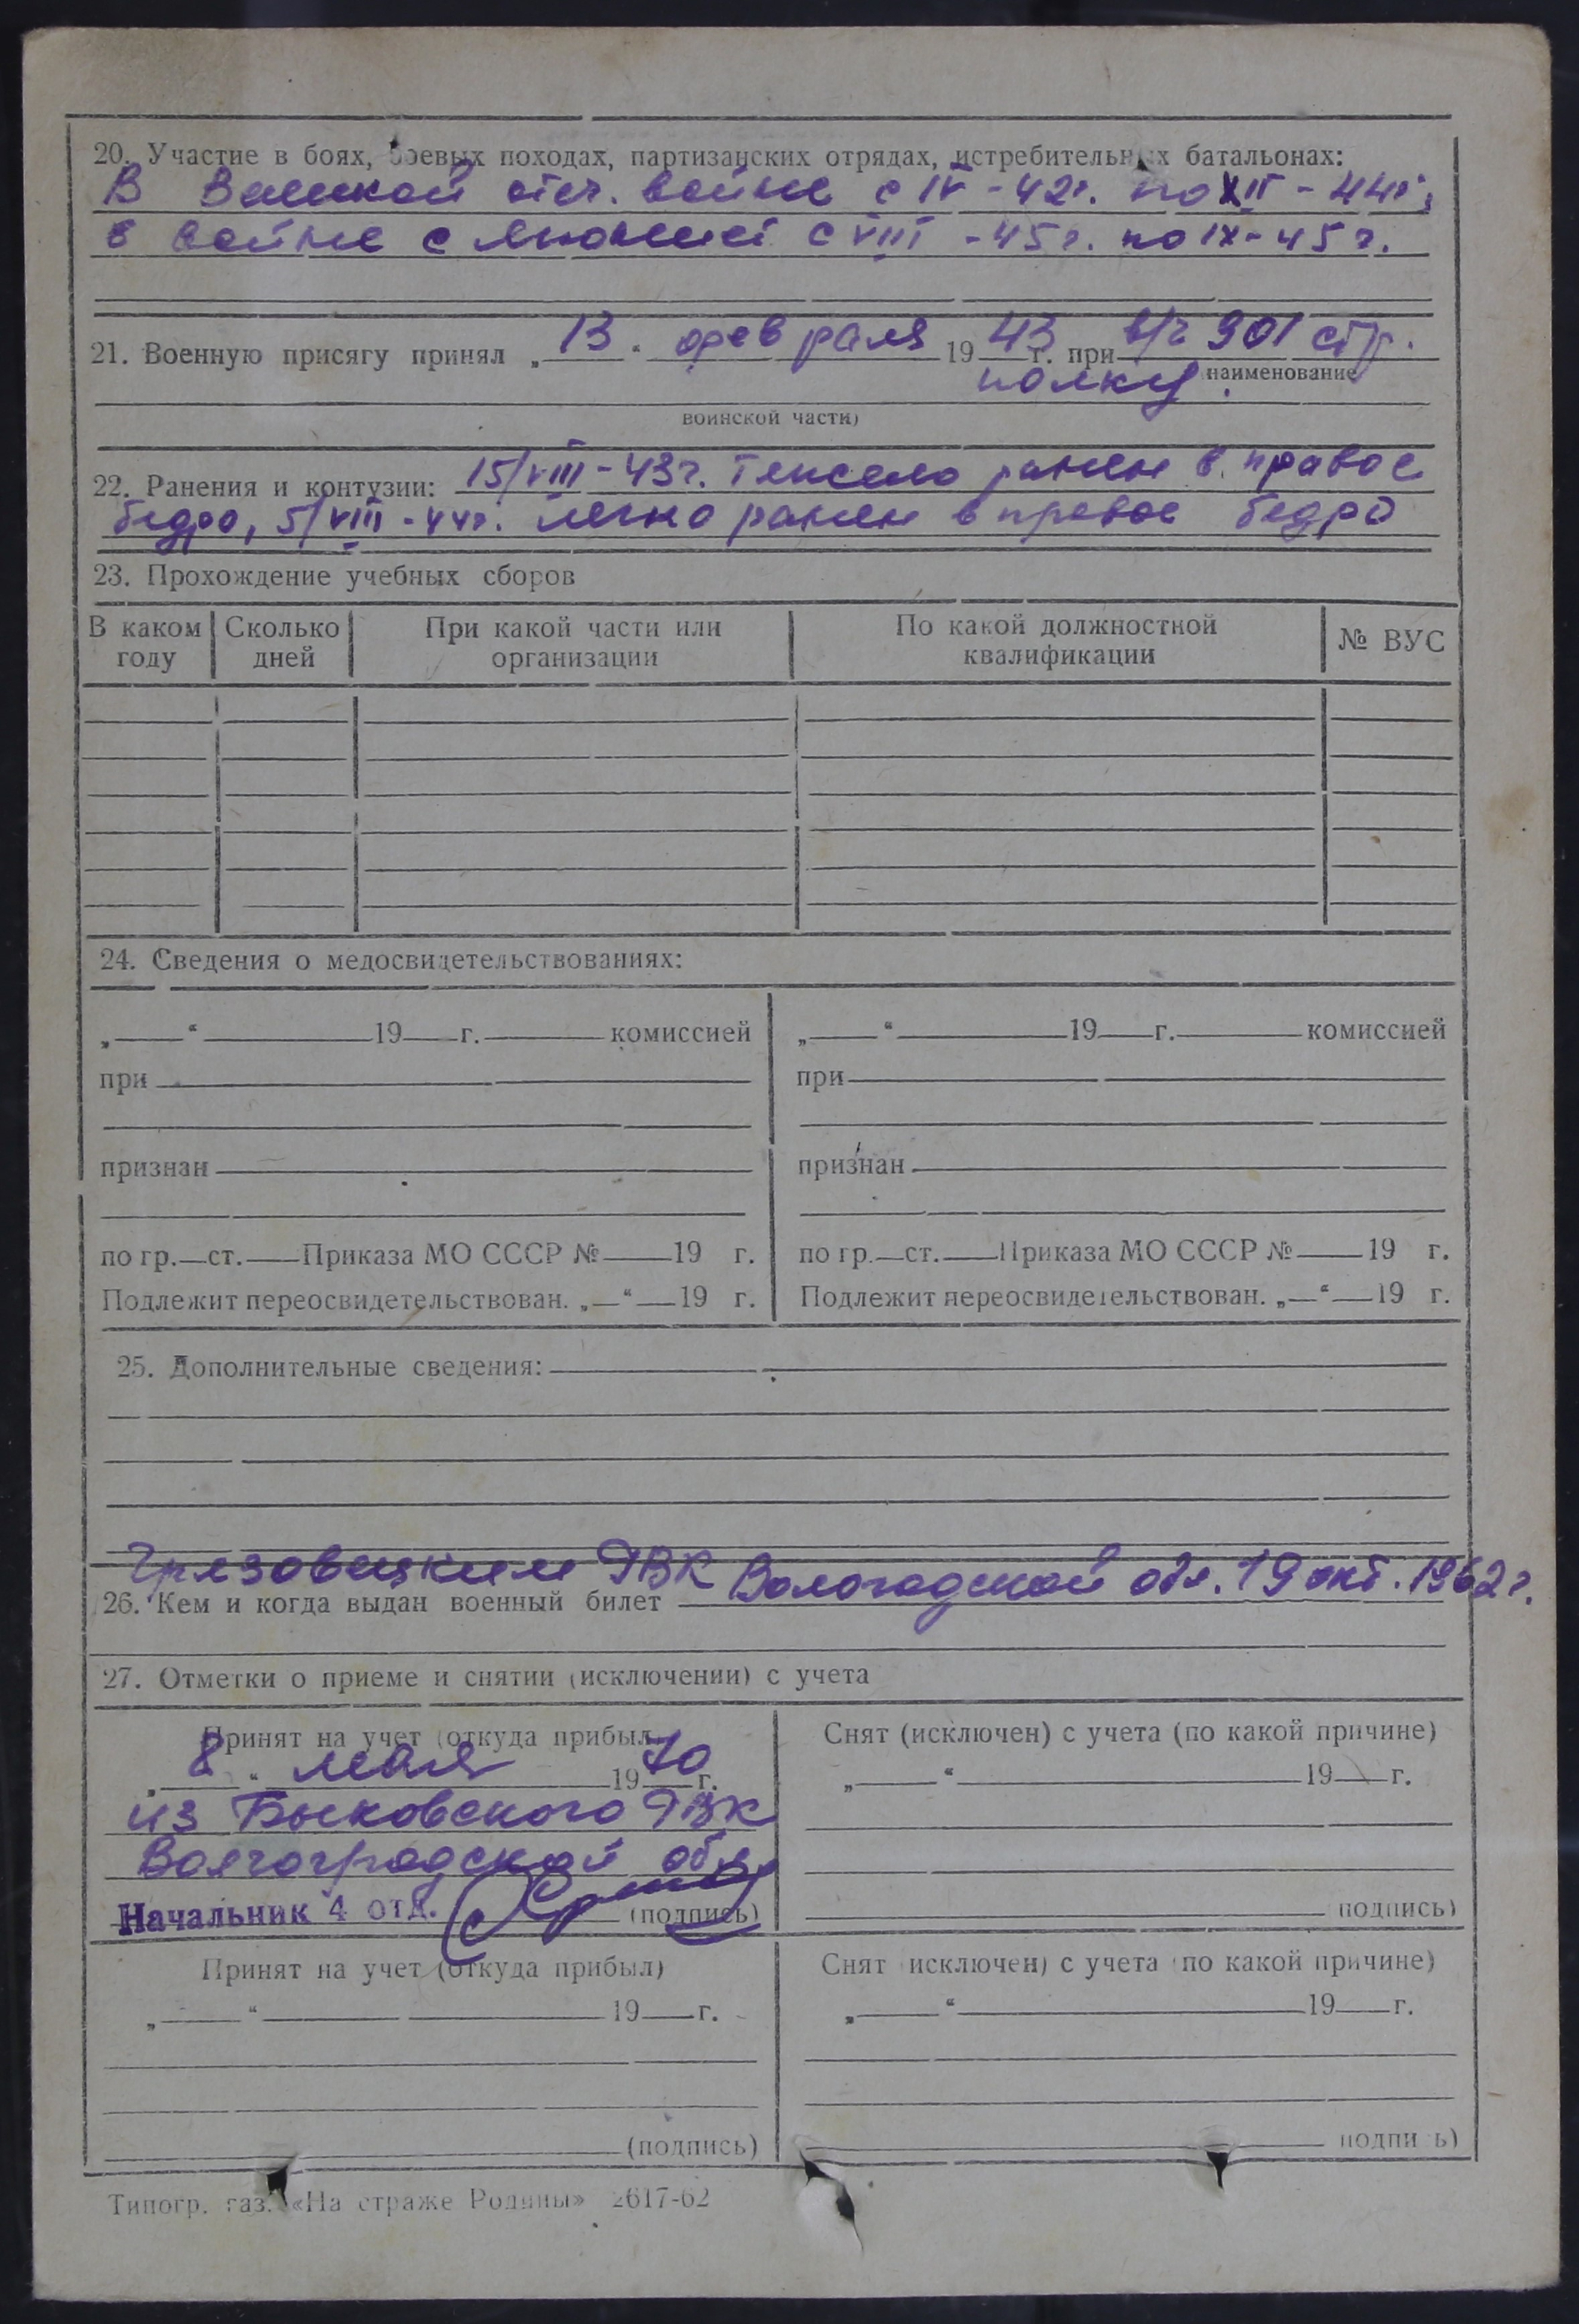 20. Участие в боях, боевых походах, партизанских отрядах, истребительных батальонах:
В Великой отеч. войне с IV-42г. по XII-44г.,
в войне с Японией с VIII-45г. по IX-45г.
21. Военную присягу принял „13“ февраля 1943 г. при в/ч 901 стр.
полку.
наименование
воинской части)
22. Ранения и контузии: 15/VIII-43г. тяжело ранен в правое
бедро, 5/VIII-44г. легко ранен в правое бедро
23. Прохождение учебных сборов
В каком году
Сколько дней
При какой части или организации
По какой должностной квалификации
№ ВУС
24. Сведения о медосвидетельствованиях:
„ “ 19 г. комиссией
при
признан
по гр. ст. Приказа МО СССР № 19 г.
Подлежит переосвидетельствован. „ “ 19 г.
„ “ 19 г. комиссией
при
признан
по гр. ст. Приказа МО СССР № 19 г.
Подлежит переосвидетельствован. „ “ 19 г.
25. Дополнительные сведения:
Грязовецким РВК Вологодской обл. 19 окт. 1962г.
26. Кем и когда выдан военный билет
27. Отметки о приеме и снятии (исключении) с учета
Принят на учет (откуда прибыл)
„8“ мая 1970 г.
из Быковского РВК
Волгоградской обл.
Начальник 4 отд. (подпись)
Снят (исключен) с учета (по какой причине)
„ “ 19 г.
подпись)
Принят на учет (откуда прибыл)
„ “ 19 г.
(подпись)
Снят исключен) с учета по какой причине)
„ “ 19 г.
подпись)
Типогр. газ. «На страже Родины» 2617-62